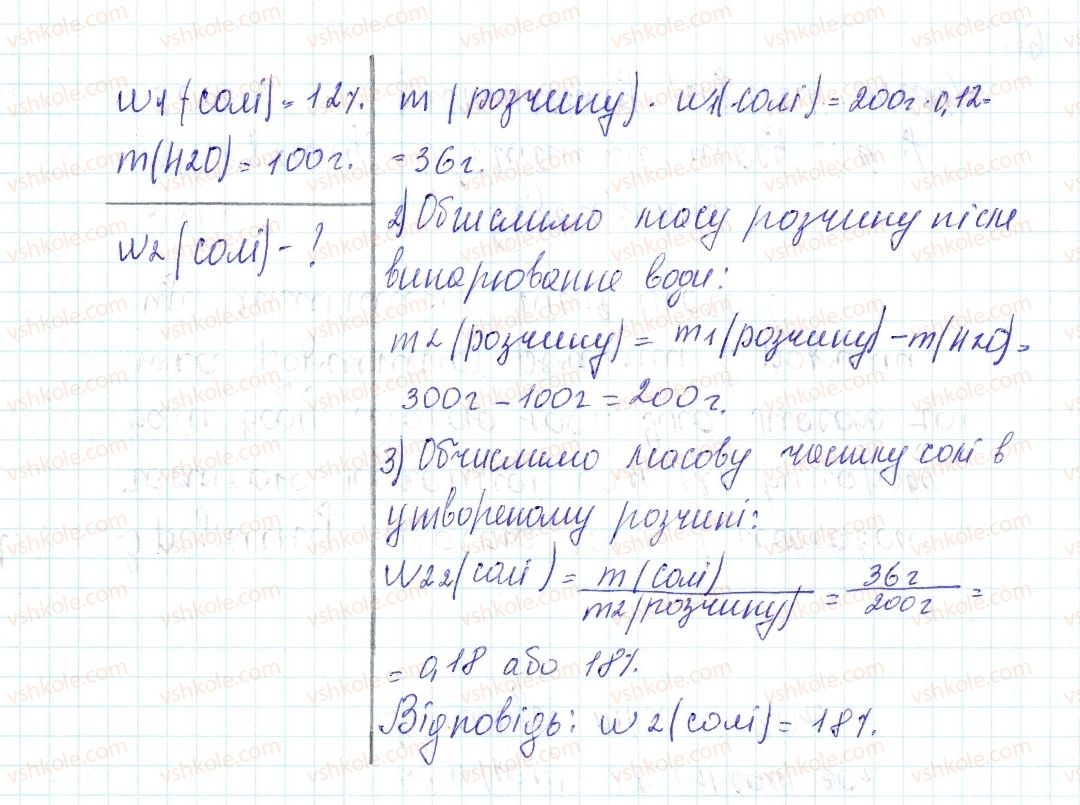 w1(солі) = 12%.
m(H2O) = 100г.
w2(солі) - ?
m(розчину) · w1(солі) = 200г · 0,12 =
= 36г.
2) Обчислимо масу розчину після
випарювання води:
m2(розчину) = m1(розчину) - m(H2O) =
300г - 100г = 200г.
3) Обчислимо масову частину солі в
утвореному розчині:
w22(солі) = m(солі) / m2(розчину) = 36г / 200г =
= 0,18 або 18%.
Відповідь: w2(солі) = 18%.